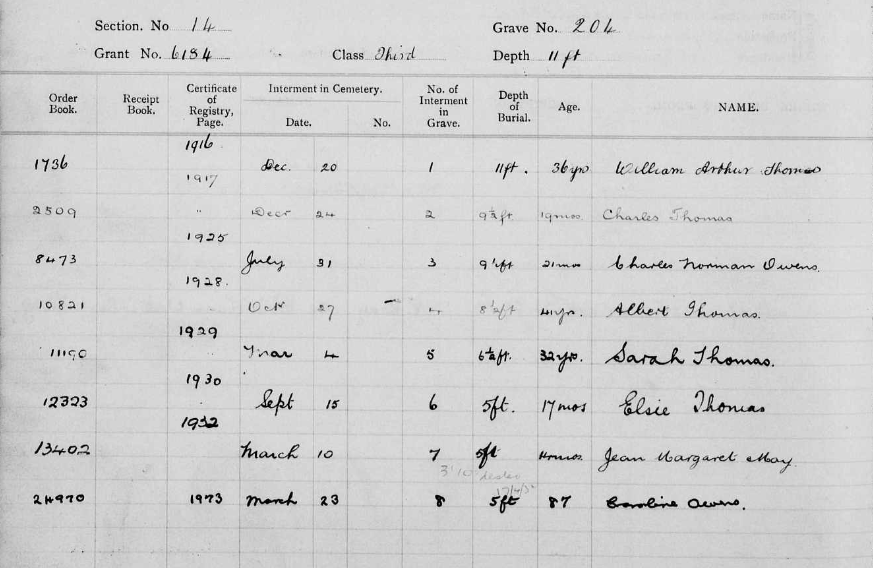 Section. No 14 Grave No. 204
Grant No. 6184 Class Third Depth 11 ft
Order Book. Receipt Book. Certificate of Registry, Page. Interment in Cemetery. Date. No. No. of Interment in Grave. Depth of Burial. Age. NAME.
1916
1736 Dec. 20 1 11ft. 36yrs William Arthur Thomas
1917
2509 " Decr 24 2 9½ft 19mos Charles Thomas
1925
8473 July 31 3 9½ft 21mos Charles Norman Owens.
1928.
10821 Oct 27 4 8½ft 41yrs. Albert Thomas.
1929
11190 Mar 4 5 6½ft. 32yrs. Sarah Thomas.
1930
12323 Sept 15 6 5ft. 17mos Elsie Thomas
1932
13402 March 10 7 5ft mos. Jean Margaret May
3'10
24970 1973 March 23 8 5ft 87 Caroline Owens.